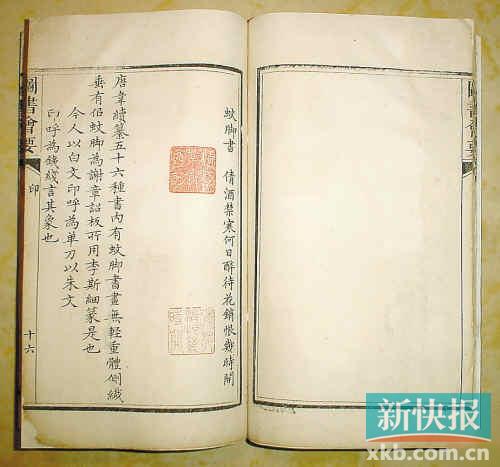 圖書會要
蚊脚書 倩酒禁寒何日醉待花銷恨幾時開
唐韋續纂五十六種書內有蚊脚書畫無輕重體側纖
垂有佀蚊脚為謝章詔板所用李斯細篆是也
今人以白文印呼為單刀以朱文
印呼為鐵綫言其象也
圖書會要
印
十六
新快报
xkb.com.cn